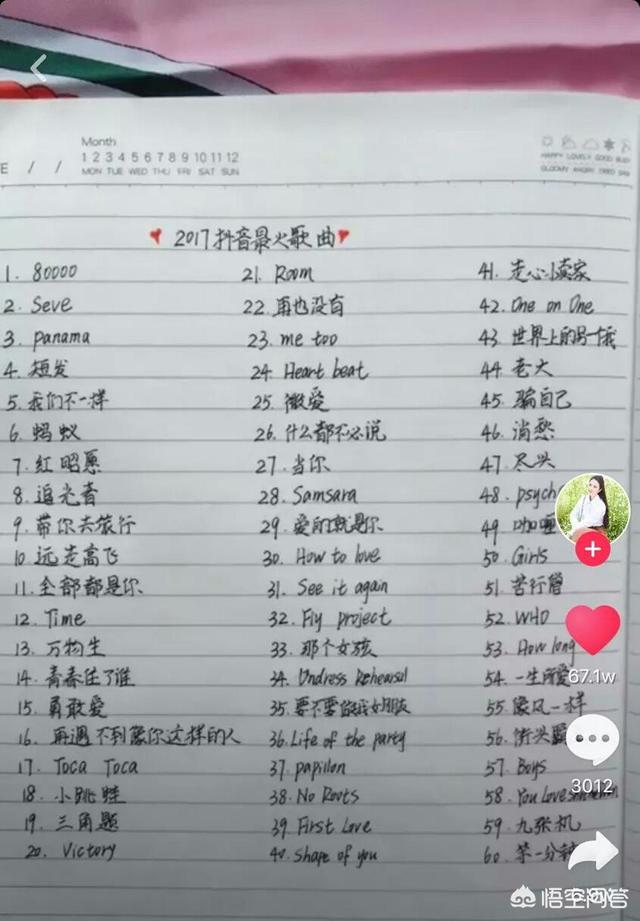 Month
1 2 3 4 5 6 7 8 9 10 11 12
MON TUE WED THU FRI SAT SUN
E / /
HAPPY LOVELY GOOD
GLOOMY ANGRY TIRED
2017抖音最火歌曲
1. 80000
2. Seve
3. panama
4. 短发
5. 我们不一样
6. 蚂蚁
7. 红昭愿
8. 追光者
9. 带你去旅行
10. 远走高飞
11. 全部都是你
12. Time
13. 万物生
14. 青春住了谁
15. 勇敢爱
16. 再遇不到像你这样的人
17. Toca Toca
18. 小跳蛙
19. 三角题
20. Victory
21. Room
22. 再也没有
23. me too
24. Heart beat
25. 微爱
26. 什么都不必说
27. 当你
28. Samsara
29. 爱的就是你
30. How to love
31. See it again
32. Fly project
33. 那个女孩
34. Undress Rehearsal
35. 要不要做我女朋友
36. Life of the party
37. papillon
38. No Roots
39. First Love
40. Shape of you
41. 走心小卖家
42. One on One
43. 世界上的另一个我
44. 老大
45. 骗自己
46. 消愁
47. 尽头
48. psych
49. 咖喱
50. Girls
51. 苦行僧
52. WHO
53. How long
54. 一生所爱
55. 像风一样
56. 街头霸
57. Boys
58. You Love
59. 九张机
60. 第一分钟
67.1w
3012
6.9w
悟空问答